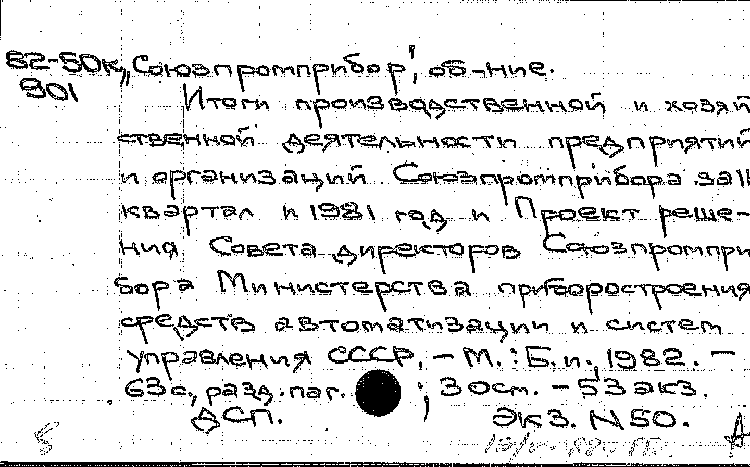 82-50к „Союзпромприбор", об-ние.
801
Итоги производственной и хозяй
ственной деятельности предприятий
и организаций Союзпромприбора за II
квартал и 1981 год и Проект реше-
ния Совета директоров Союзпромпри
бора Министерства приборостроения
средств автоматизации и систем
управления СССР. – М.: Б.и., 1982. –
63 с., разд. паг. ; 30 см. – 53 экз.
ДСП. Экз. N 50.